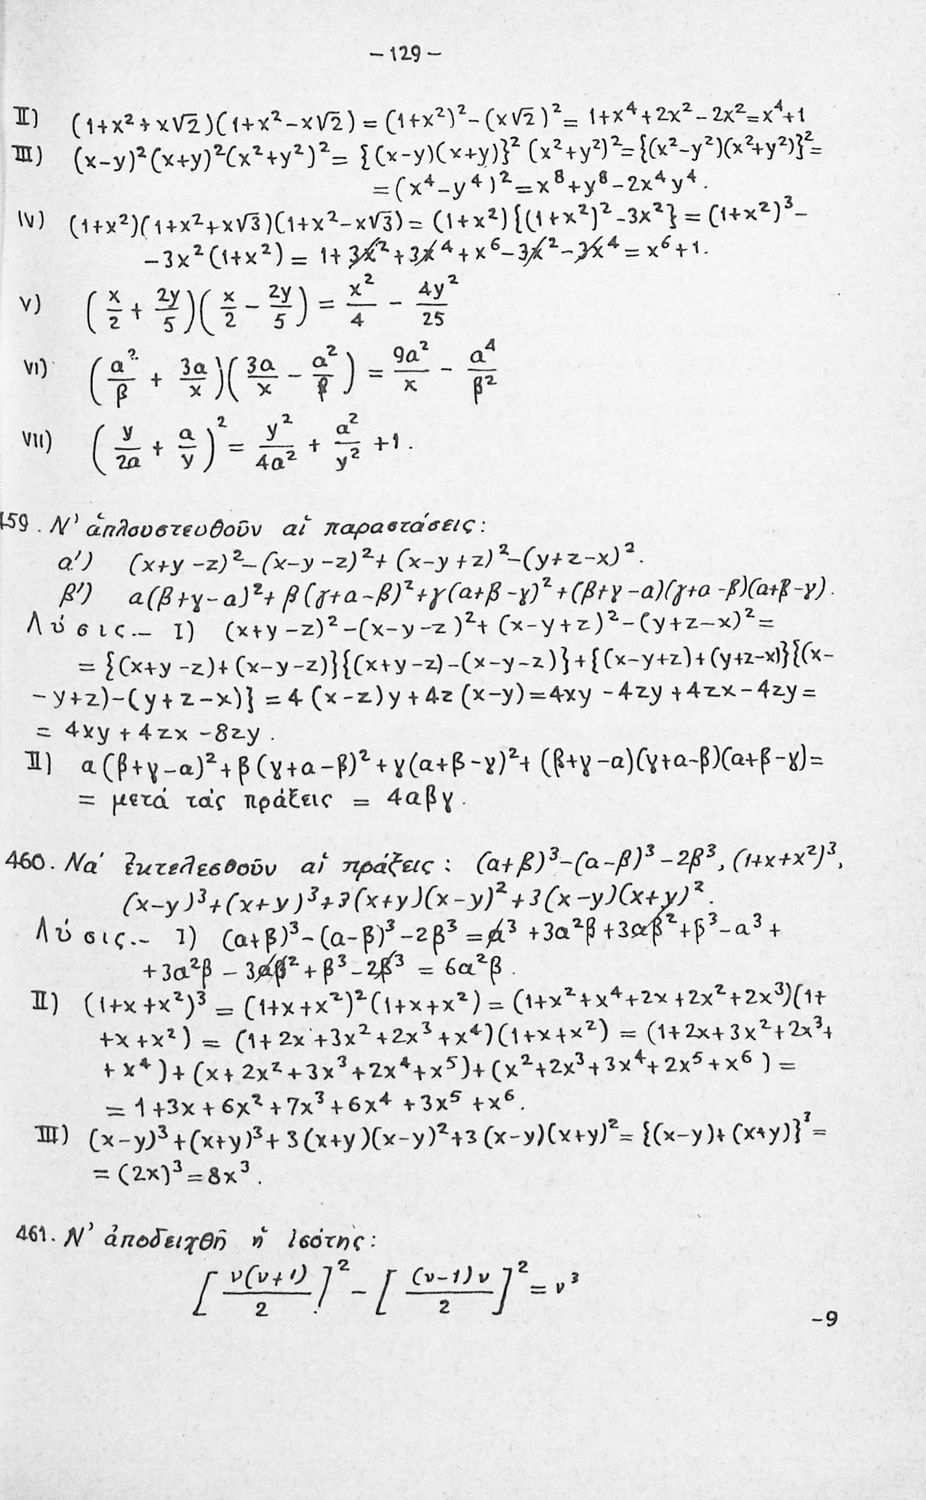 -129-
II) (1+x²+x√2)(1+x²-x√2) = (1+x²)²-(x√2)²= 1+x⁴+2x²-2x²=x⁴+1
III) (x-y)²(x+y)²(x²+y²)²= {(x-y)(x+y)}² (x²+y²)²={(x²-y²)(x²+y²)}²=
=(x⁴-y⁴)²=x⁸+y⁸-2x⁴y⁴.
IV) (1+x²)(1+x²+x√3)(1+x²-x√3)= (1+x²){(1+x²)²-3x²} = (1+x²)³-
-3x²(1+x²) = 1+3x²+3x⁴+x⁶-3x²-3x⁴=x⁶+1.
V) (x/2 + 2y/5)(x/2 - 2y/5) = x²/4 - 4y²/25
VI) (α²/β + 3α/x)(3α/x - α²/β) = 9α²/x - α⁴/β²
VII) (y/2α + α/y)² = y²/4α² + α²/y² +1.
459. Ν' ἁπλουστευθοῦν αἱ παραστάσεις:
α') (x+y-z)²-(x-y-z)²+(x-y+z)²-(y+z-x)².
β') α(β+γ-α)²+β(γ+α-β)²+γ(α+β-γ)²+(β+γ-α)(γ+α-β)(α+β-γ).
Λύσις.- I) (x+y-z)²-(x-y-z)²+(x-y+z)²-(y+z-x)²=
={(x+y-z)+(x-y-z)}{(x+y-z)-(x-y-z)}+{(x-y+z)+(y+z-x)}{(x-
-y+z)-(y+z-x)} = 4(x-z)y+4z(x-y)=4xy-4zy+4zx-4zy=
= 4xy+4zx-8zy.
II) α(β+γ-α)²+β(γ+α-β)²+γ(α+β-γ)²+(β+γ-α)(γ+α-β)(α+β-γ)=
= μετά τάς πράξεις = 4αβγ.
460. Νά ἐκτελεσθοῦν αἱ πράξεις: (α+β)³-(α-β)³-2β³, (1+x+x²)³,
(x-y)³+(x+y)³+3(x+y)(x-y)²+3(x-y)(x+y)².
Λύσις.- I) (α+β)³-(α-β)³-2β³ =α³+3α²β+3αβ²+β³-α³+
+3α²β-3αβ²+β³-2β³ = 6α²β.
II) (1+x+x²)³ = (1+x+x²)²(1+x+x²) = (1+x²+x⁴+2x+2x²+2x³)(1+
+x+x²) = (1+2x+3x²+2x³+x⁴)(1+x+x²) = (1+2x+3x²+2x³+
+x⁴)+(x+2x²+3x³+2x⁴+x⁵)+(x²+2x³+3x⁴+2x⁵+x⁶) =
=1+3x+6x²+7x³+6x⁴+3x⁵+x⁶.
III) (x-y)³+(x+y)³+3(x+y)(x-y)²+3(x-y)(x+y)²= {(x-y)+(x+y)}³=
=(2x)³=8x³.
461. Ν' ἀποδειχθῆ ἡ ἰσότης:
[ν(ν+1)/2]² - [(ν-1)ν/2]² = ν³
-9